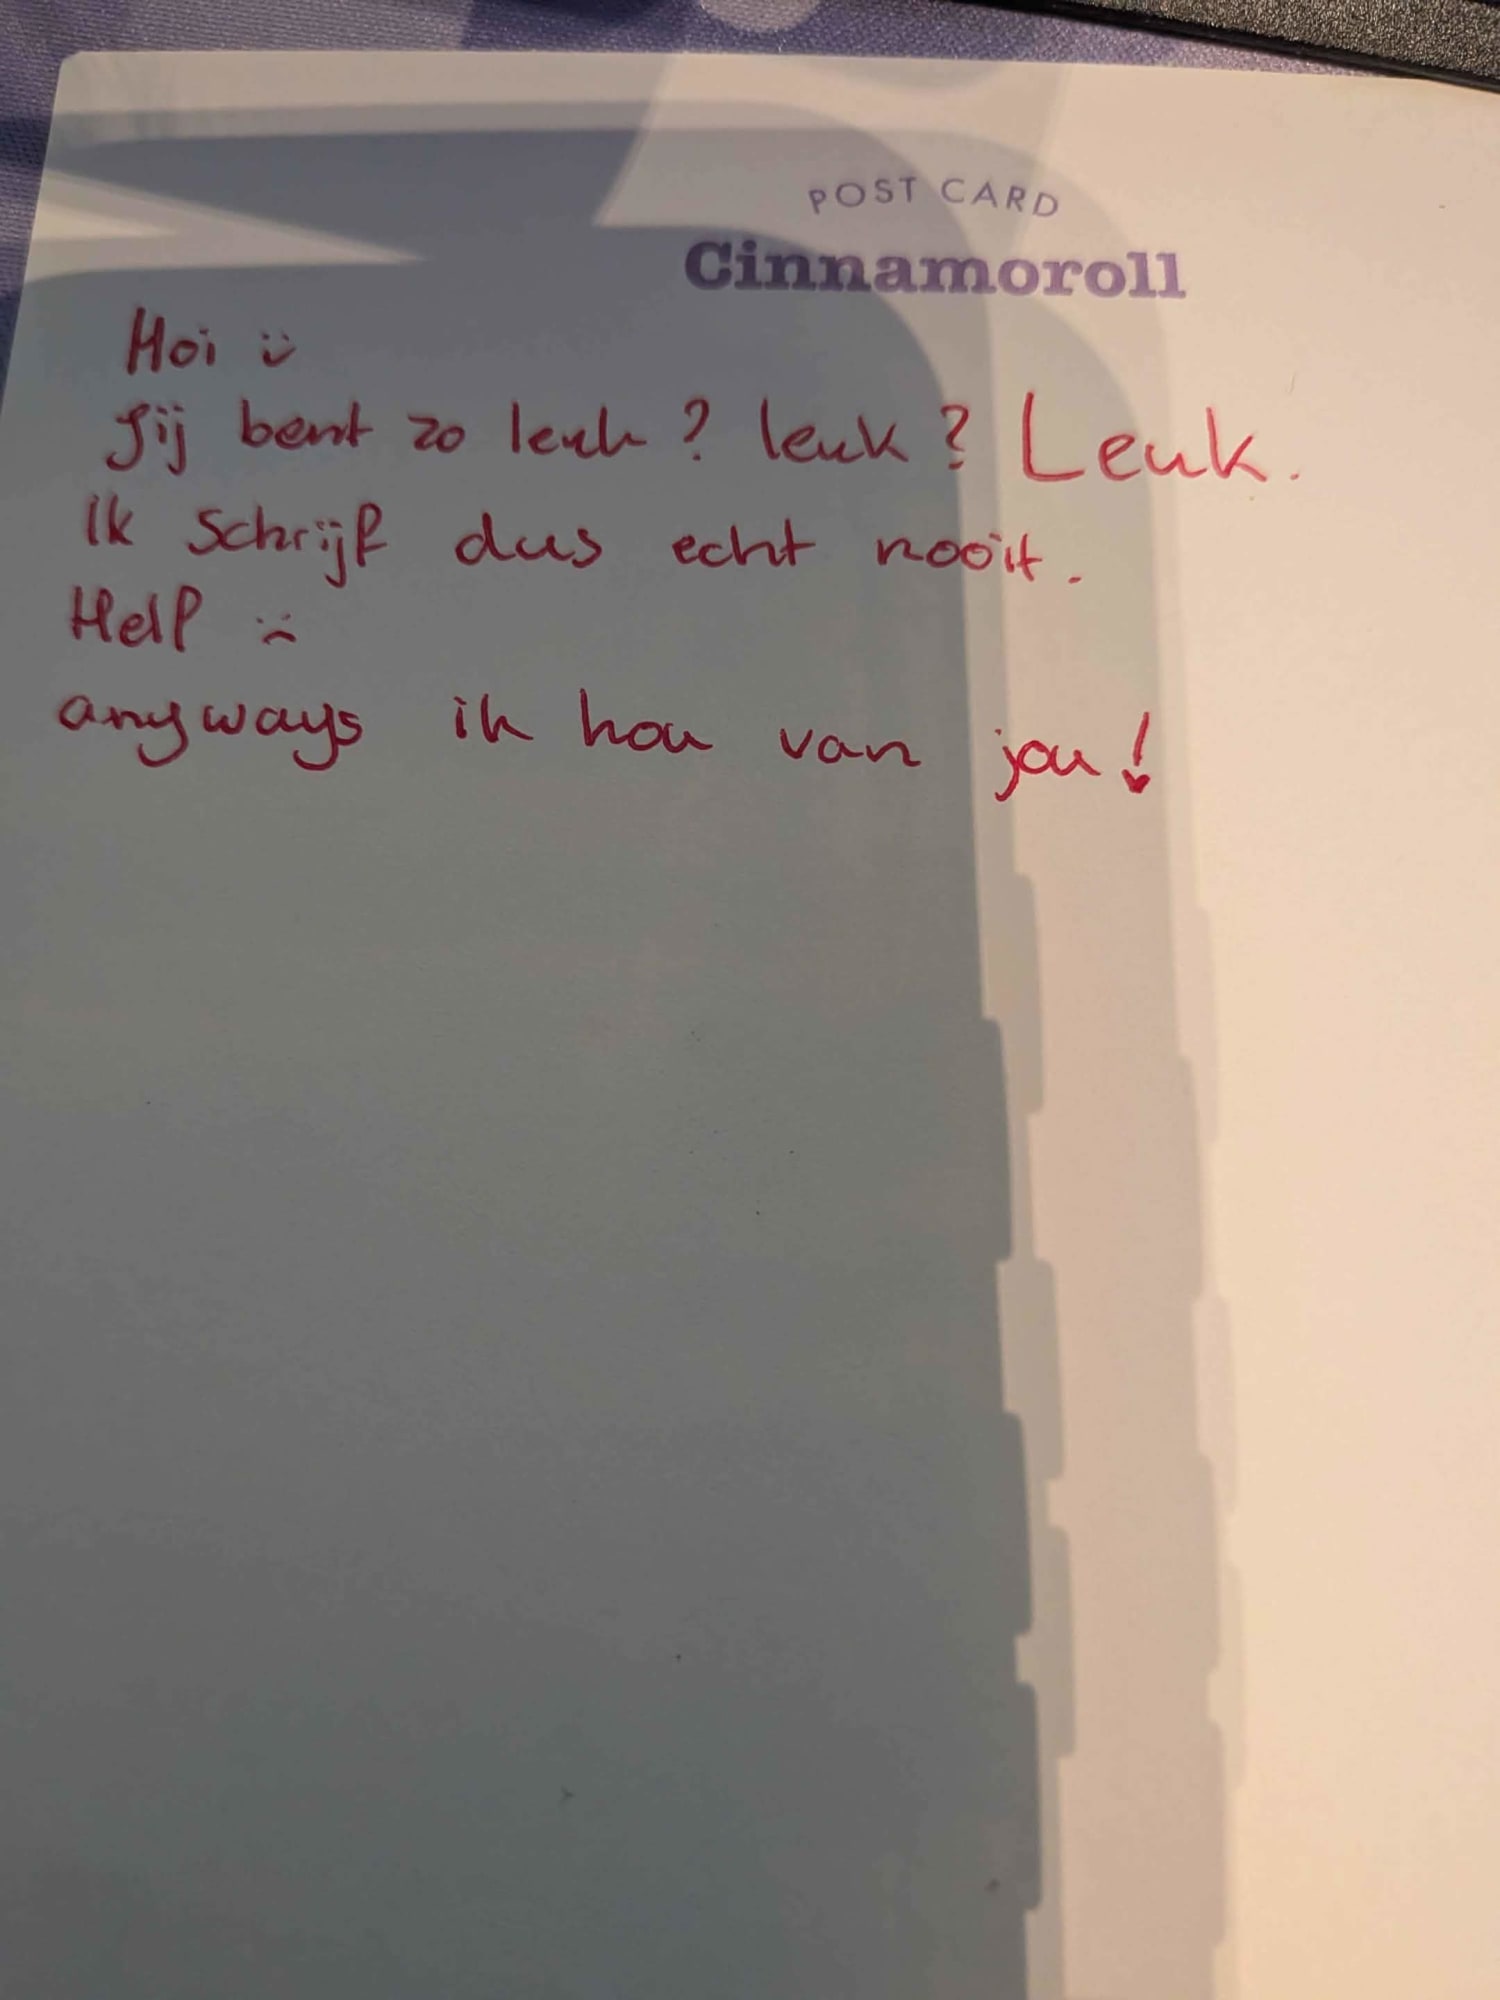 POST CARD
Cinnamoroll
Hoi :)
Jij bent zo leuk? leuk? Leuk.
ik schrijf dus echt nooit.
Help :(
anyways ik hou van jou!